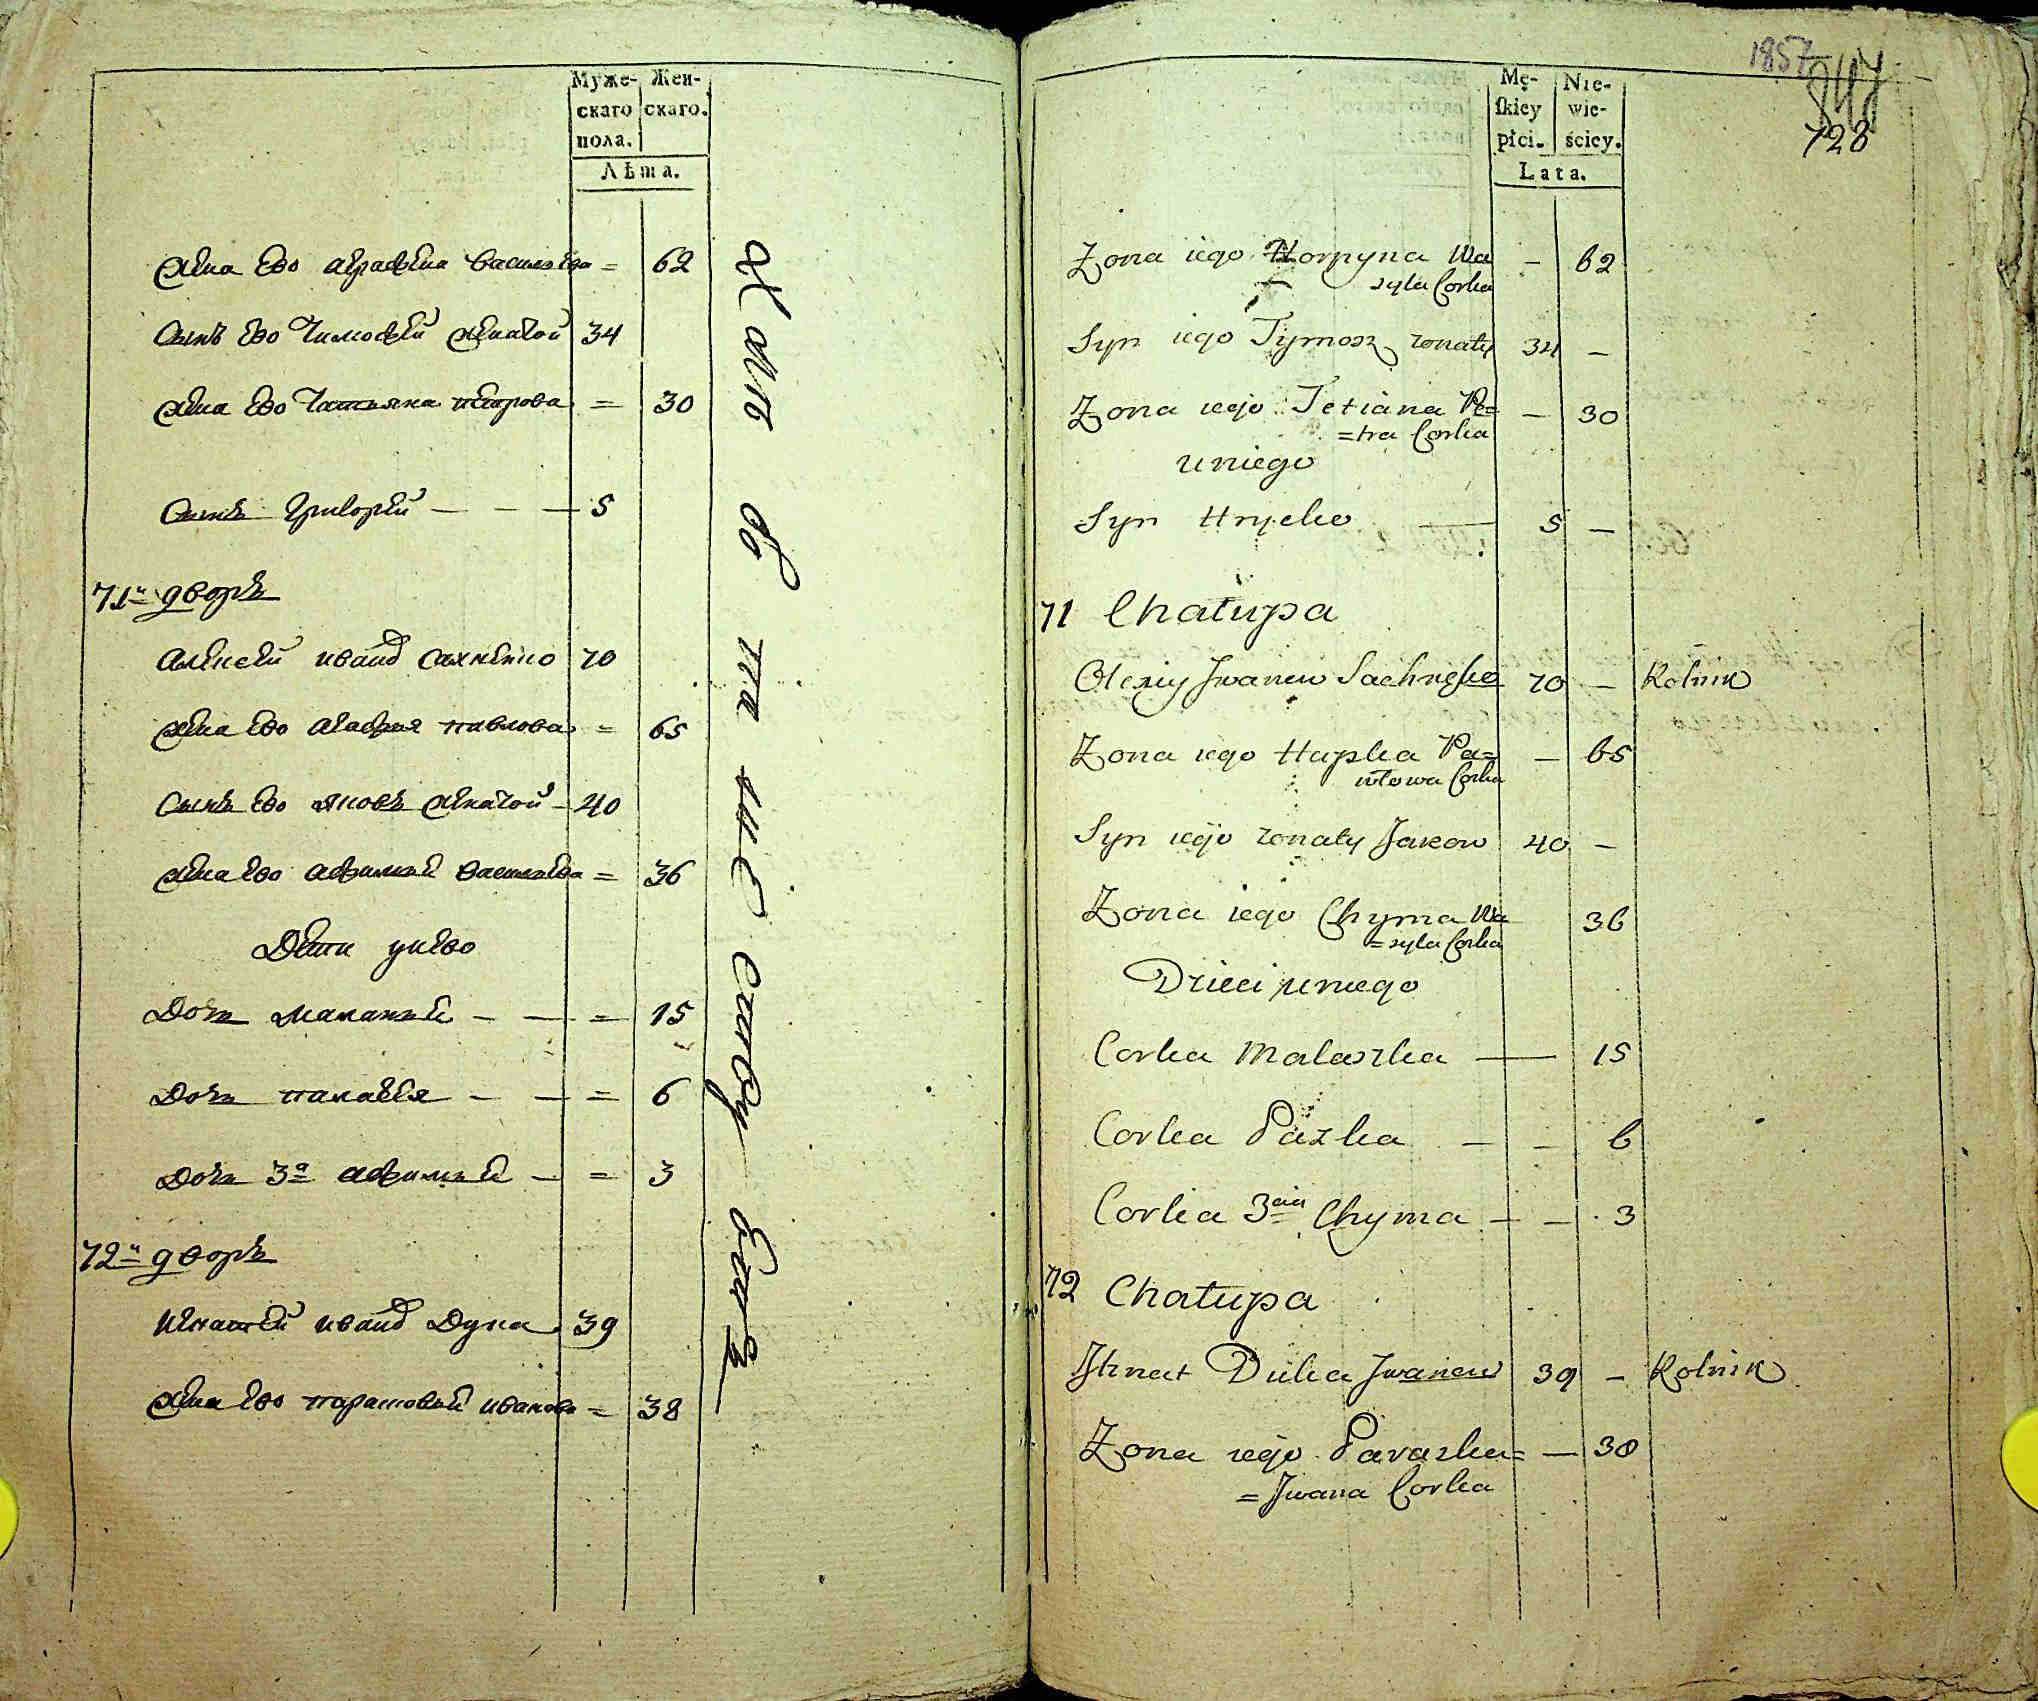 Муже- Жен-
скаго скаго.
пола.
Лѣта.
жена ево аграфена васильева = 62
Сынъ ево тимофей женатой 34
жена ево татьяна петрова = 30
Сынъ григорей — — — 5
71й дворъ
алексей иванов сахненко 70
жена ево агафия павлова = 65
Сынъ ево яковъ женатой — 40
жена ево афимия васильева = 36
Дети унево
Дочь маланья — — = 15
Дочь палагея — — = 6
Дочь 3я афимья — = 3
72й дворъ
игнатей иванов Дука 39
жена ево парасковья иванова = 38
1857
847
728
Mę- Nie-
ſkiey wie-
płci. ściey.
Lata.
Zona iego Horpyna Wa — 62
syla Corka
Syn iego Tymosz zonaty 34 —
Zona iego Tetiana Pe= — 30
=tra Corka
u niego
Syn Hryćko — 5 —
71 Chałupa
Olexiy Jwanow Sachneko 70 — Rolnik
Zona iego Hapka Pa= — 65
włowa Corka
Syn iego zonaty Jakow 40 —
Zona iego Chyma Wa 36
=syla Corka
Dzieci u niego
Corka Małaszka — 15
Corka Paszka — — 6
Corka 3cia Chyma — — 3
72 Chałupa
Jhnat Duka Jwanow 39 — Rolnik
Zona iego Paraszka= — 38
=Jwana Corka